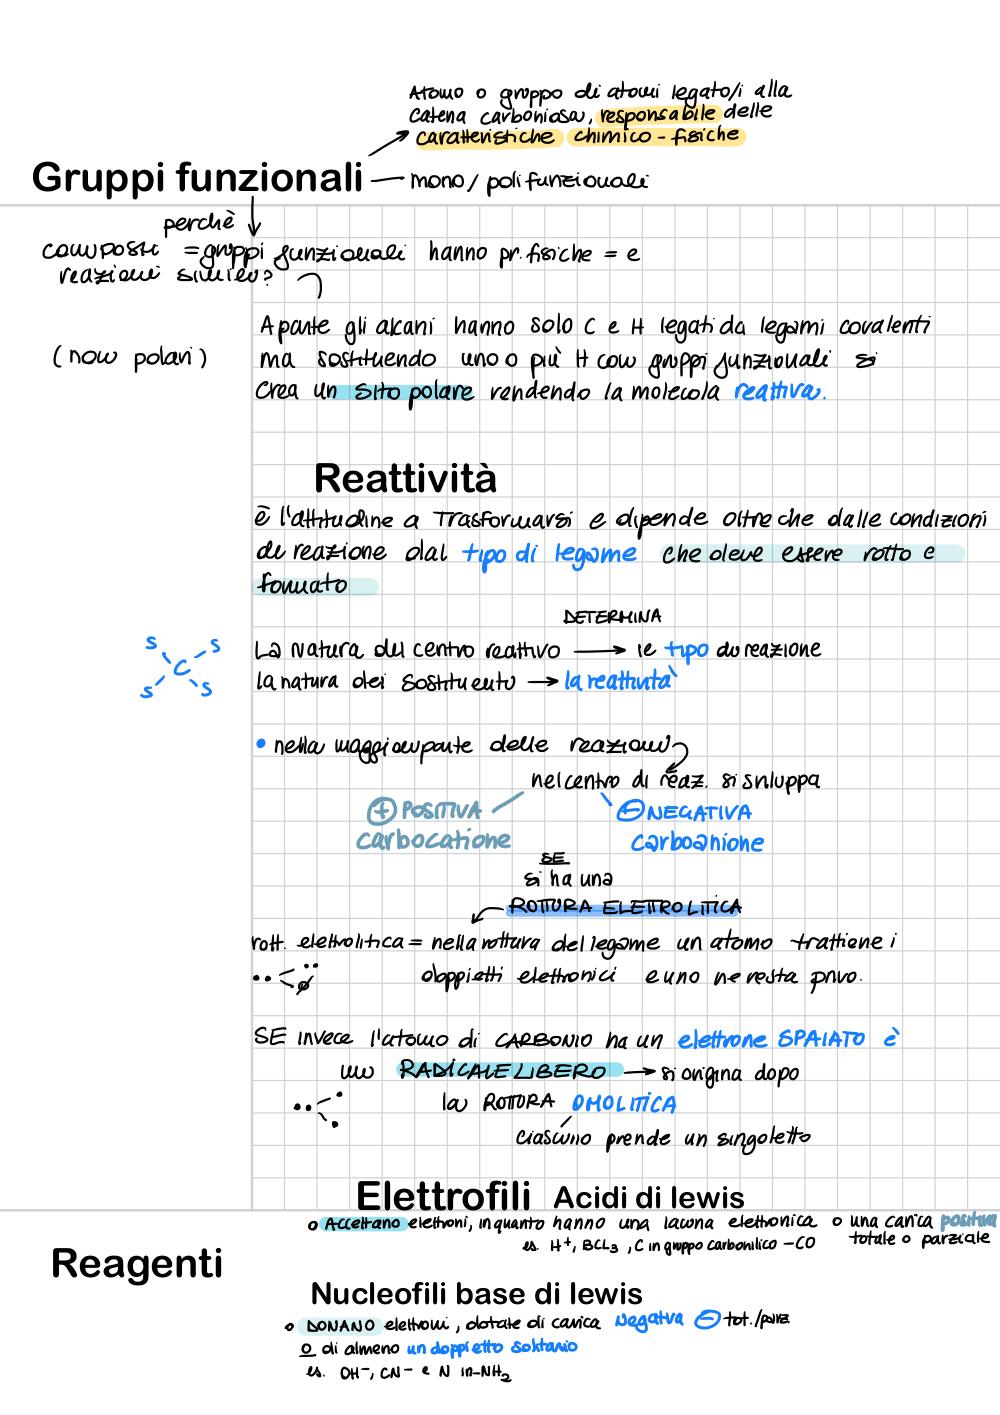 Atomo o gruppo di atomi legato/i alla
catena carboniosa, responsabile delle
caratteristiche chimico-fisiche
Gruppi funzionali
mono/polifunzionali
perchè
composti = gruppi funzionali hanno pr. fisiche = e
reazioni simili?
A parte gli alcani hanno solo C e H legati da legami covalenti
(non polari)
ma sostituendo uno o più H con gruppi funzionali si
crea un sito polare rendendo la molecola reattiva.
Reattività
è l'attitudine a trasformarsi e dipende oltre che dalle condizioni
di reazione dal tipo di legame che deve essere rotto e
formato
DETERMINA
La natura del centro reattivo → il tipo di reazione
la natura dei sostituenti → la reattività
S S
C
S S
• nella maggior parte delle reazioni
nel centro di reaz. si sviluppa
+ POSITIVA
− NEGATIVA
carbocatione
carboanione
SE
si ha una
ROTTURA ELETTROLITICA
rott. elettrolitica = nella rottura del legame un atomo trattiene i
doppietti elettronici e uno ne resta privo.
SE invece l'atomo di CARBONIO ha un elettrone SPAIATO è
un RADICALE LIBERO → si origina dopo
la ROTTURA OMOLITICA
ciascuno prende un singoletto
Elettrofili Acidi di lewis
o Accettano elettroni, in quanto hanno una lacuna elettronica o una carica positiva
totale o parziale
es. H+, BCL₃, C in gruppo carbonilico -CO
Reagenti
Nucleofili base di lewis
o DONANO elettroni, dotate di carica negativa − tot./parz
o di almeno un doppietto solitario
es. OH⁻, CN⁻ e N in -NH₂